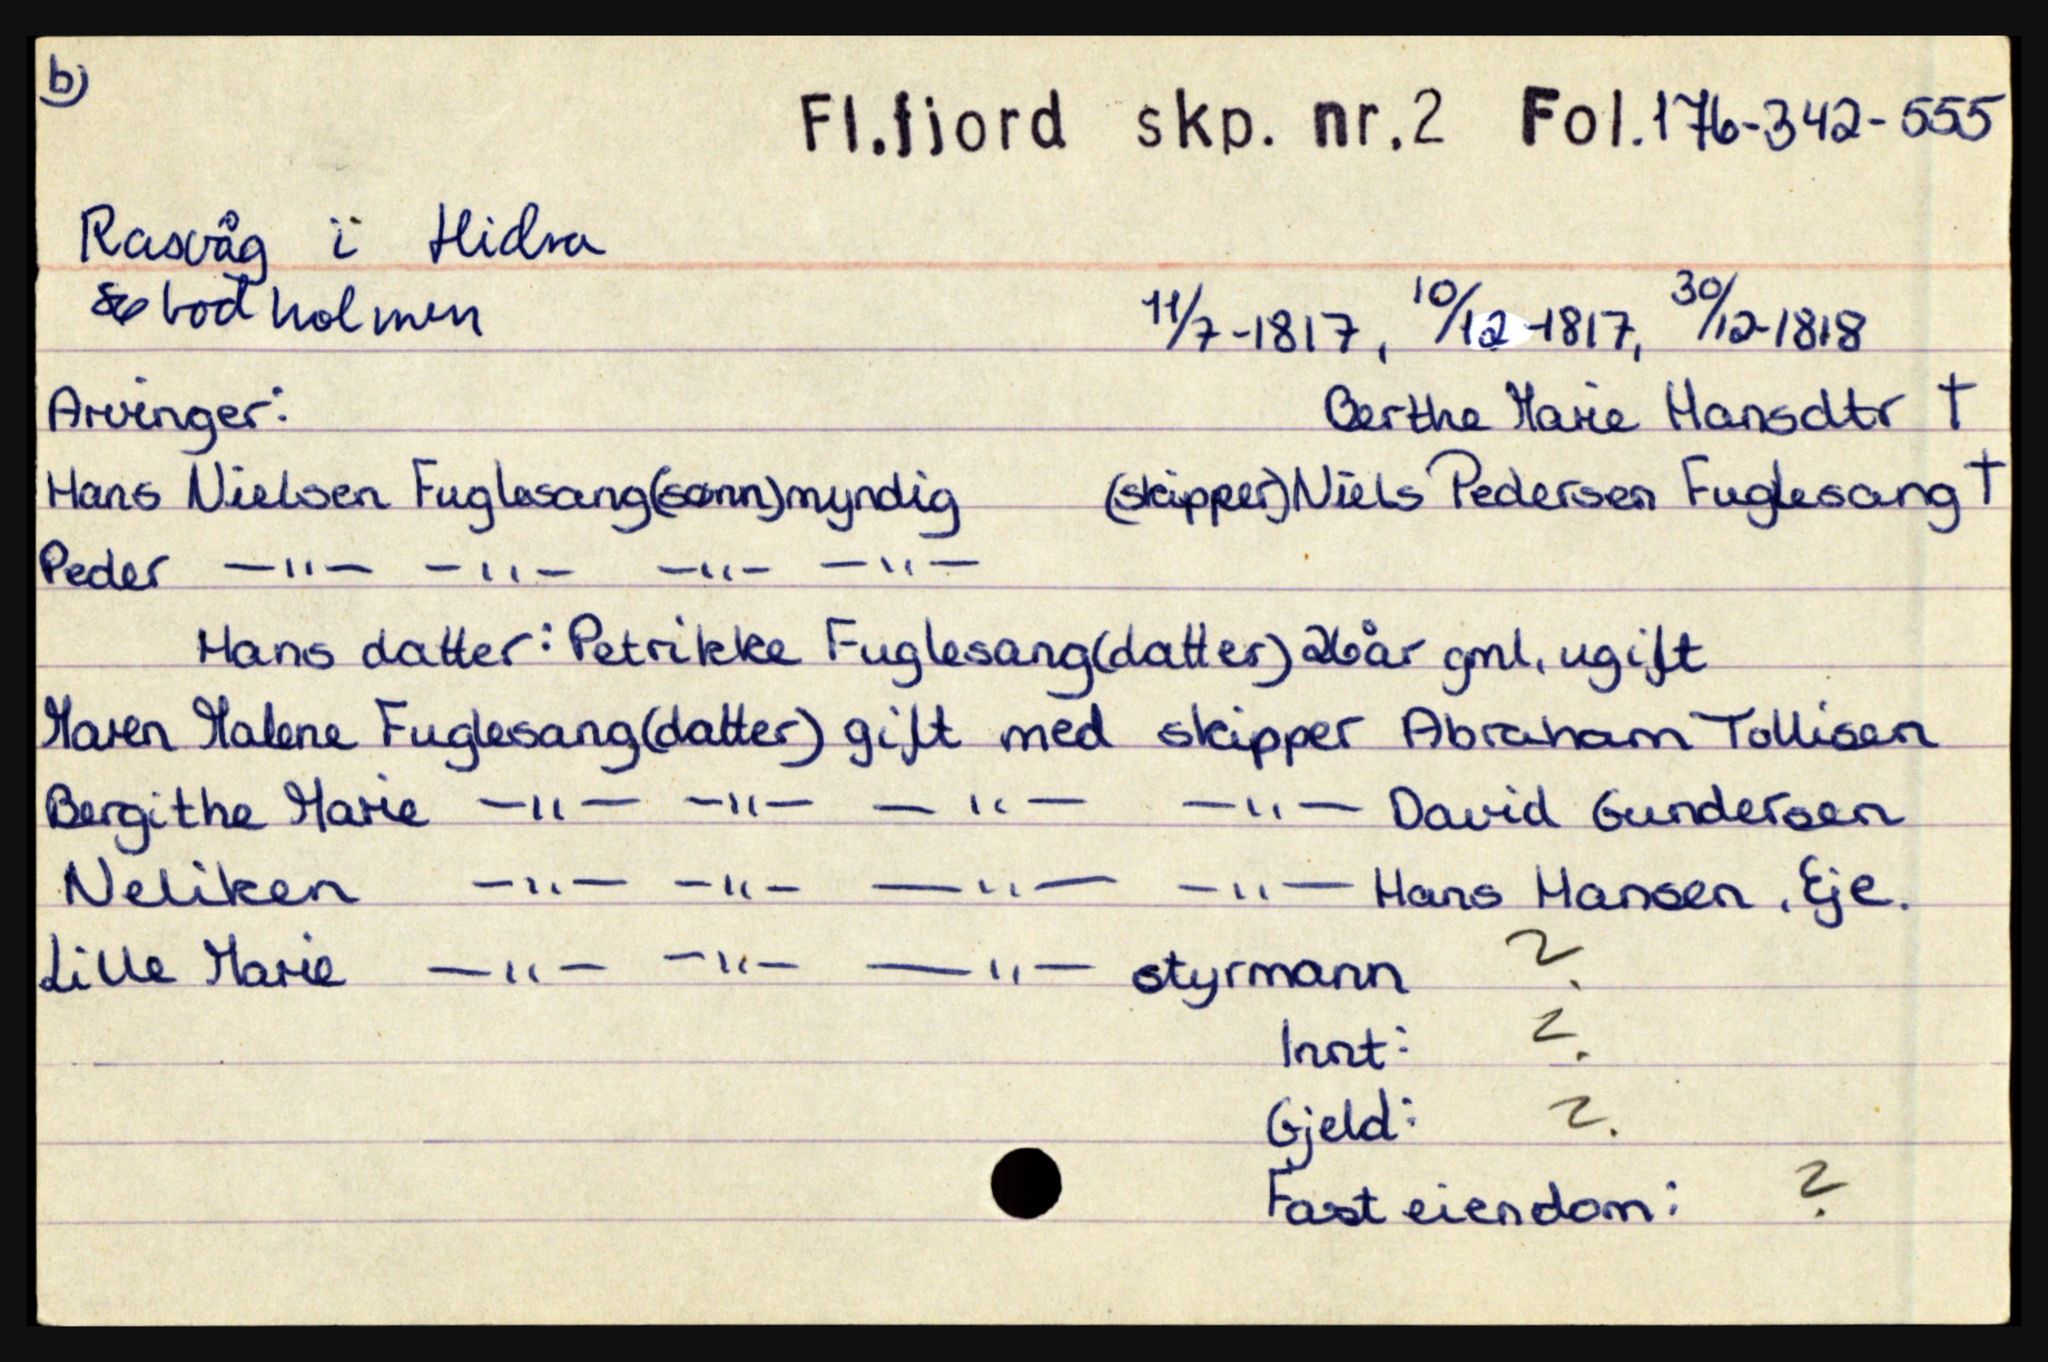 b)
Fl.fjord skp. nr.2 Fol.176-342-555
Rasvåg i Hidra
& bodholmen
11/7-1817, 10/12-1817, 30/12-1818
Arvinger: Berthe Marie Hansdtr †
Hans Nielsen Fuglesang(sønn)myndig (skipper)Niels Pedersen Fuglesang †
Peder —"— —"— —"— —"—
Hans datter: Petrikke Fuglesang(datter) 26 år gml, ugift
Maren Malene Fuglesang(datter) gift med skipper Abraham Tollisen
Bergithe Marie —"— —"— —"— —"— David Gundersen
Neliken —"— —"— —"— —"— Hans Hansen, Eje.
Lille Marie —"— —"— —"— styrmann ?
Innt: ?
Gjeld: ?
Fast eiendom: ?